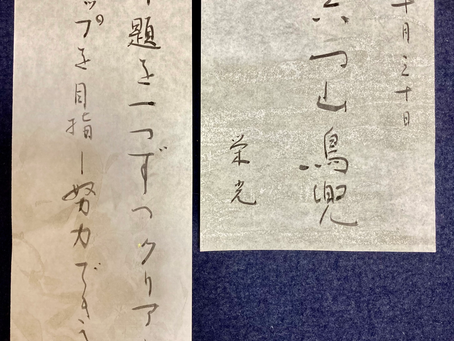 十月三十日
山鳥兜
栄光
題を一つずつクリア
ップを目指し努力でき